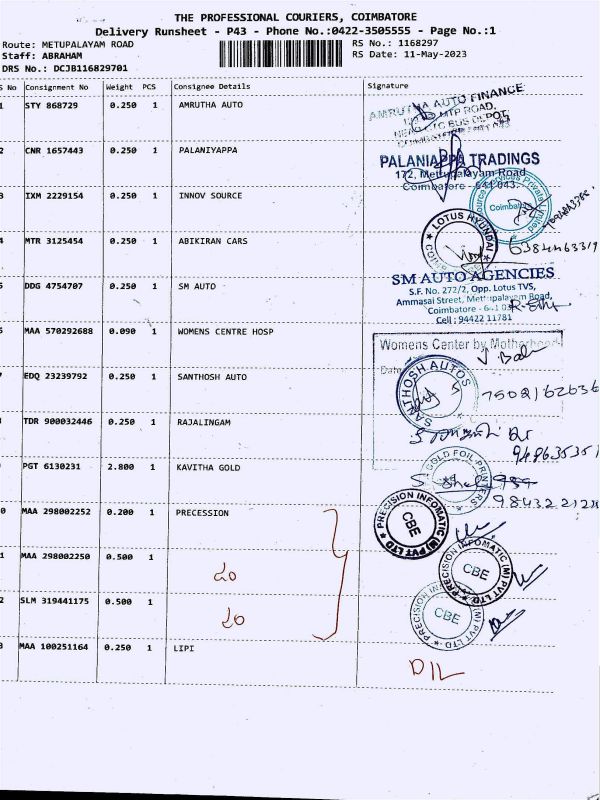 THE PROFESSIONAL COURIERS, COIMBATORE
Delivery Runsheet - P43 - Phone No.:0422-3505555 - Page No.:1
Route: METUPALAYAM ROAD RS No.: 1168297
Staff: ABRAHAM RS Date: 11-May-2023
DRS No.: DCJB116829701
S No Consignment No Weight PCS Consignee Details Signature
1 STY 868729 0.250 1 AMRUTHA AUTO
AMRUTHA AUTO FINANCE
MTP ROAD,
BUS DEPOT
2 CNR 1657443 0.250 1 PALANIYAPPA
PALANIAPPA TRADINGS
172, Mettupalayam Road
Coimbatore - 641 043.
3 IXM 2229154 0.250 1 INNOV SOURCE
Source Services Private Limited
Coimbatore
4 MTR 3125454 0.250 1 ABIKIRAN CARS
LOTUS HYUNDAI
5 DDG 4754707 0.250 1 SM AUTO
SM AUTO AGENCIES
S.F. No. 272/2, Opp. Lotus TVS,
Ammasai Street, Mettupalayam Road,
Coimbatore - 641 03
Cell : 94422 11781
6 MAA 570292688 0.090 1 WOMENS CENTRE HOSP
Womens Center by Motherhood
Date
7 EDQ 23239792 0.250 1 SANTHOSH AUTO
SANTHOSH AUTOS
7502162636
TDR 900032446 0.250 1 RAJALINGAM
PGT 6130231 2.800 1 KAVITHA GOLD
GOLD FOIL PRINTERS
0 MAA 298002252 0.200 1 PRECESSION
PRECISION INFOMATIC (M) PVT LTD
CBE
1 MAA 298002250 0.500 1
PRECISION INFOMATIC (M) PVT LTD
CBE
2 SLM 319441175 0.500 1
PRECISION INFOMATIC (M) PVT LTD
CBE
3 MAA 100251164 0.250 1 LIPI
D/L